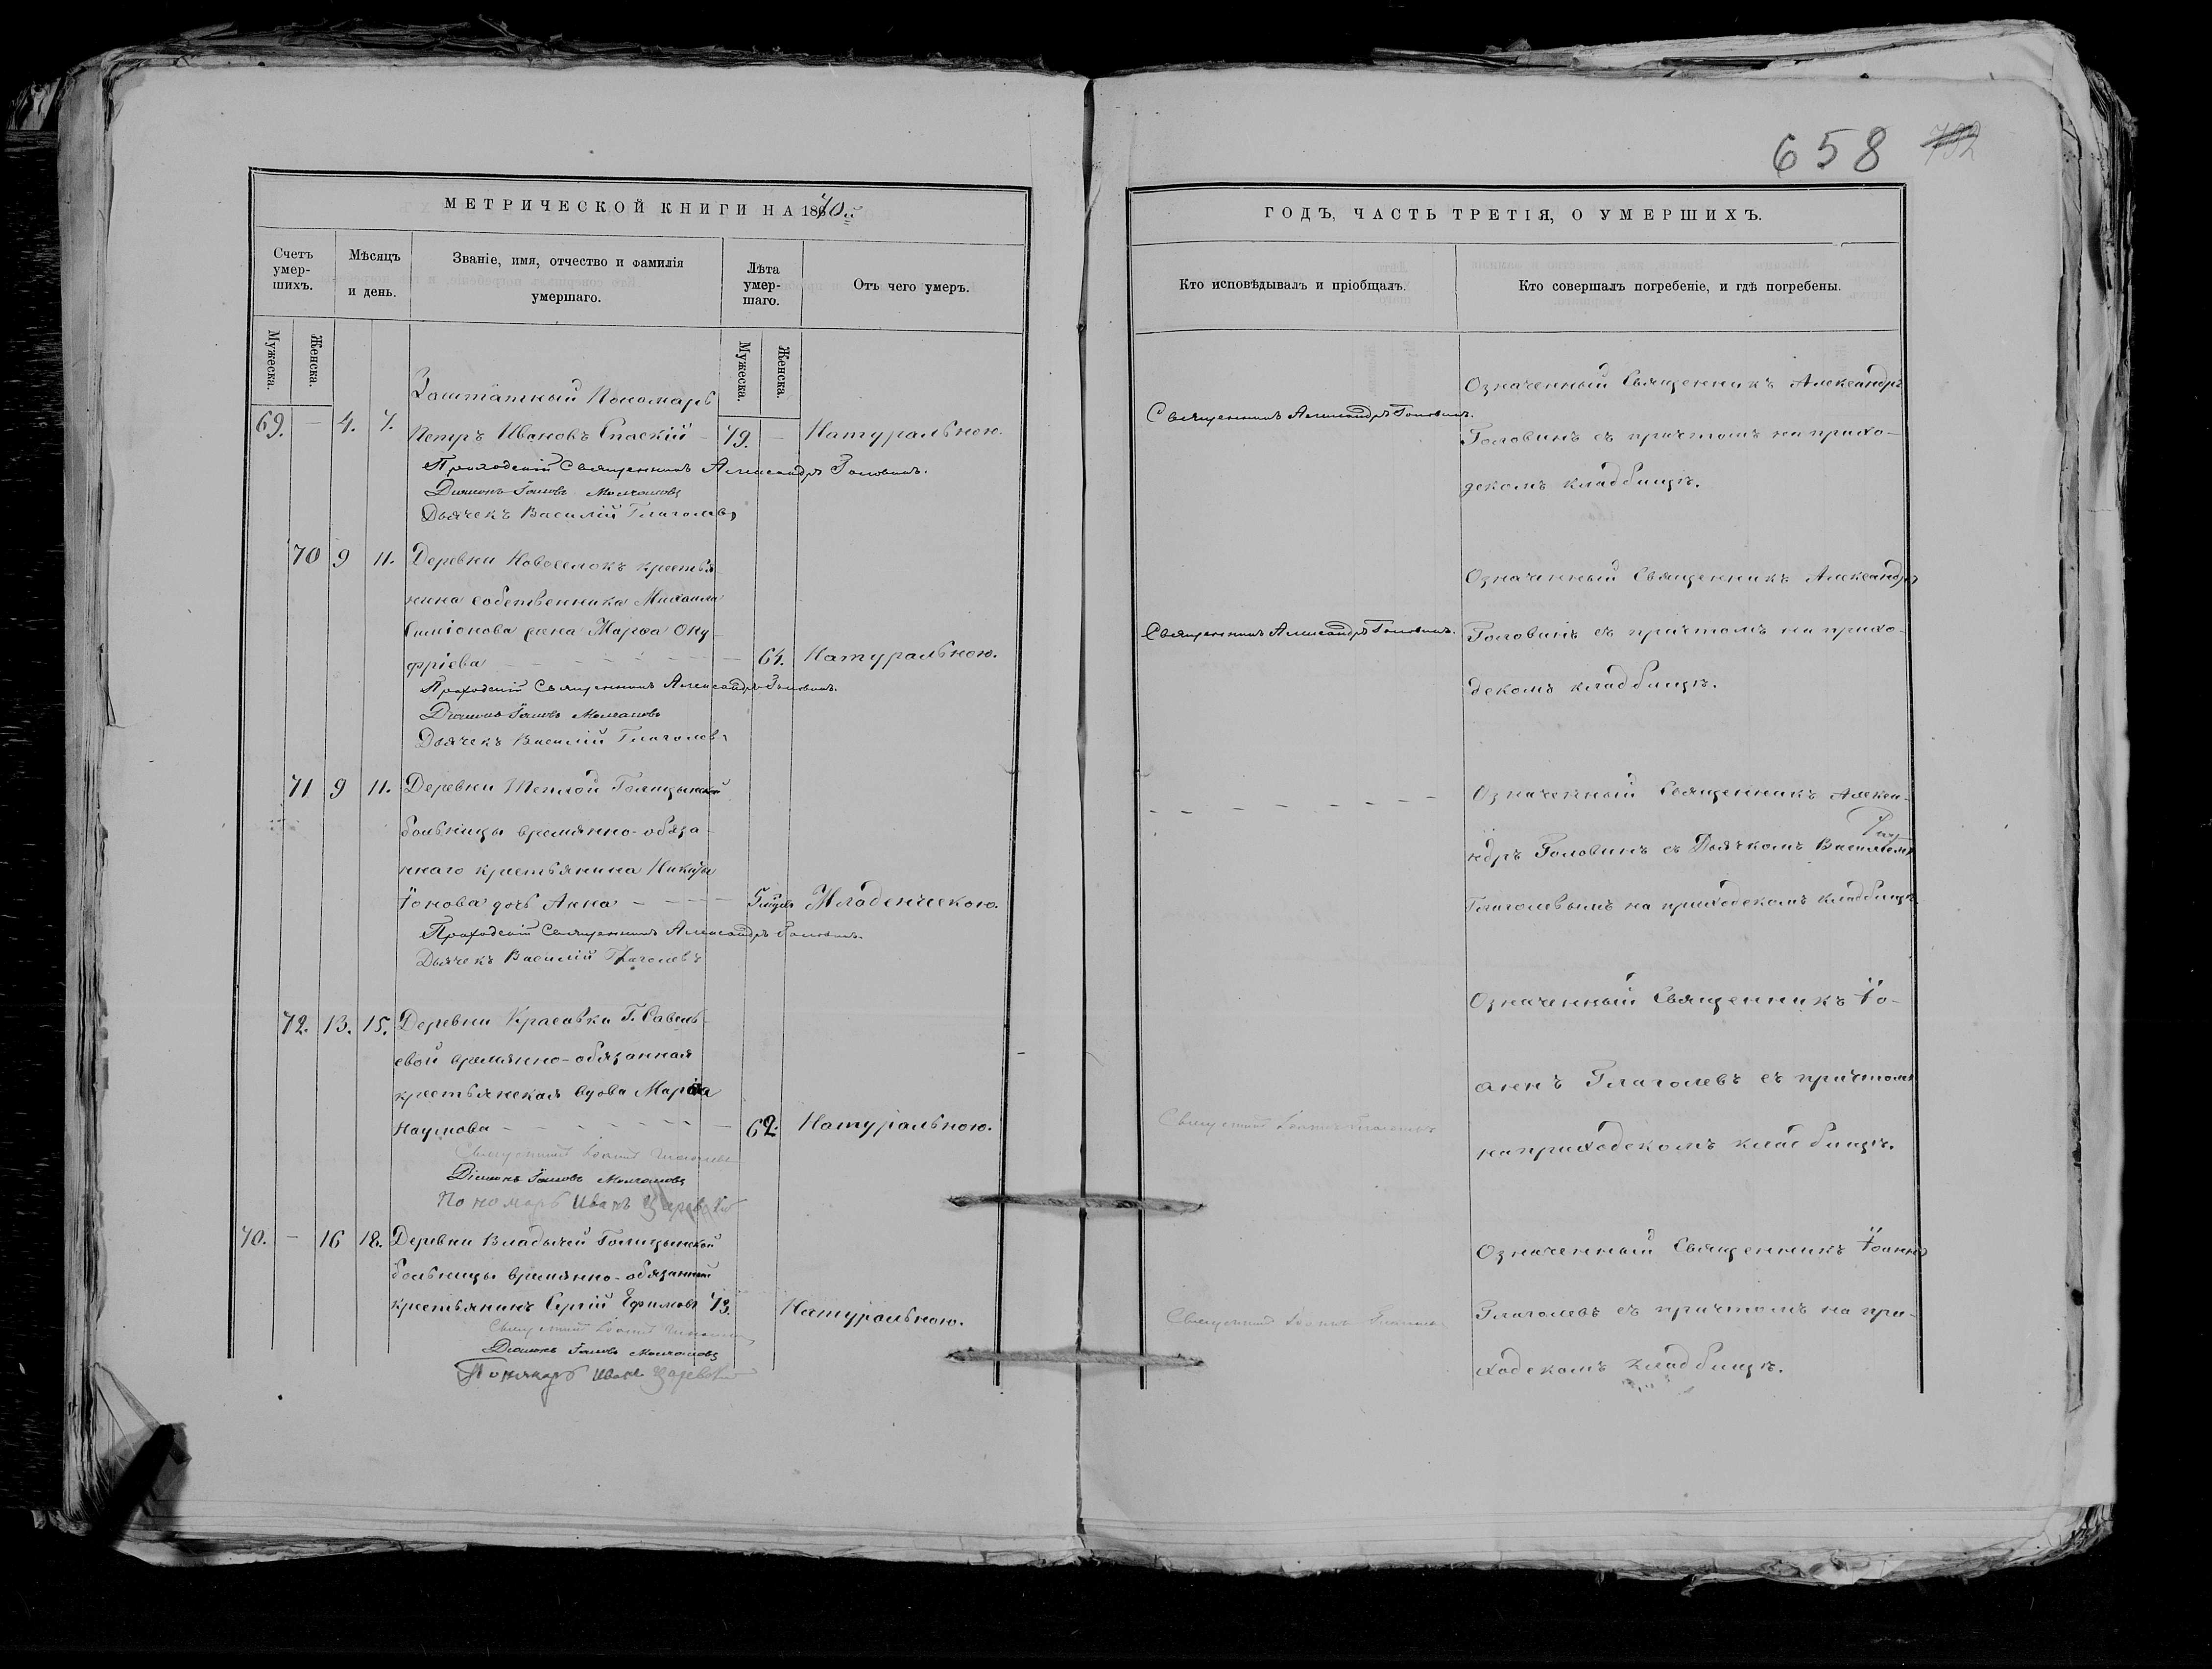 658 732
МЕТРИЧЕСКОЙ КНИГИ НА 1870й
ГОДЪ, ЧАСТЬ ТРЕТІЯ, О УМЕРШИХЪ.
Счетъ умер-шихъ.
Мѣсяцъ и день.
Званіе, имя, отчество и фамилія умершаго.
Лѣта умер-шаго.
Отъ чего умеръ.
Кто исповѣдывалъ и пріобщалъ.
Кто совершалъ погребеніе, и гдѣ погребены.
Мужеска.
Женска.
Мужеска.
Женска.
Заштатный Пономарь
69. – 4. 7. Петръ Ивановъ Спаскій – 79. – Натуральною.
Приходскій Священникъ Александръ Головинъ.
Діаконъ Іаковъ Молчановъ
Дьячекъ Василій Глаголевъ
Священникъ Александръ Головинъ.
Означенный Священникъ Александръ
Головинъ съ причтомъ на прихо-
дскомъ кладбищѣ.
70 9 11. Деревни Новоселокъ крестья
нина собственника Михаила
Симіонова жена Марѳа Ону-
фріева – 64. Натуральною.
Приходскій Священникъ Александръ Головинъ.
Діаконъ Іаковъ Молчановъ
Дьячекъ Василій Глаголевъ
Священникъ Александръ Головинъ.
Означенный Священникъ Александръ
Головинъ съ причтомъ на прихо-
дскомъ кладбищѣ.
71 9 11. Деревни Теплой Голицынской
больницы временно-обяза-
ннаго крестьянина Никиты
Іонова дочь Анна – Младенческою.
Приходскій Священникъ Александръ Головинъ.
Дьячекъ Василій Глаголевъ
Означенный Священникъ Алекса-
ндръ Головинъ съ Дьячкомъ Василіемъ
Глаголевымъ на приходскомъ кладбищѣ.
72. 13. 15. Деревни Красавки Г. Савель-
евой временно-обязанная
крестьянская вдова Марѳа
Наумова – 62. Натуральною.
Священникъ Іоаннъ Глаголевъ
Діаконъ Іаковъ Молчановъ
Пономарь Иванъ Царевскій
Священникъ Іоаннъ Глаголевъ
Означенный Священникъ Іо-
аннъ Глаголевъ съ причтомъ
на приходскомъ кладбищѣ.
70. – 16 18. Деревни Владычей Голицынской
больницы временно-обязанный
крестьянинъ Сергій Ефимовъ 73. Натуральною.
Священникъ Іоаннъ Глаголевъ
Діаконъ Іаковъ Молчановъ
Пономарь Иванъ Царевскій
Священникъ Іоаннъ Глаголевъ
Означенный Священникъ Іоаннъ
Глаголевъ съ причтомъ на при-
ходскомъ кладбищѣ.